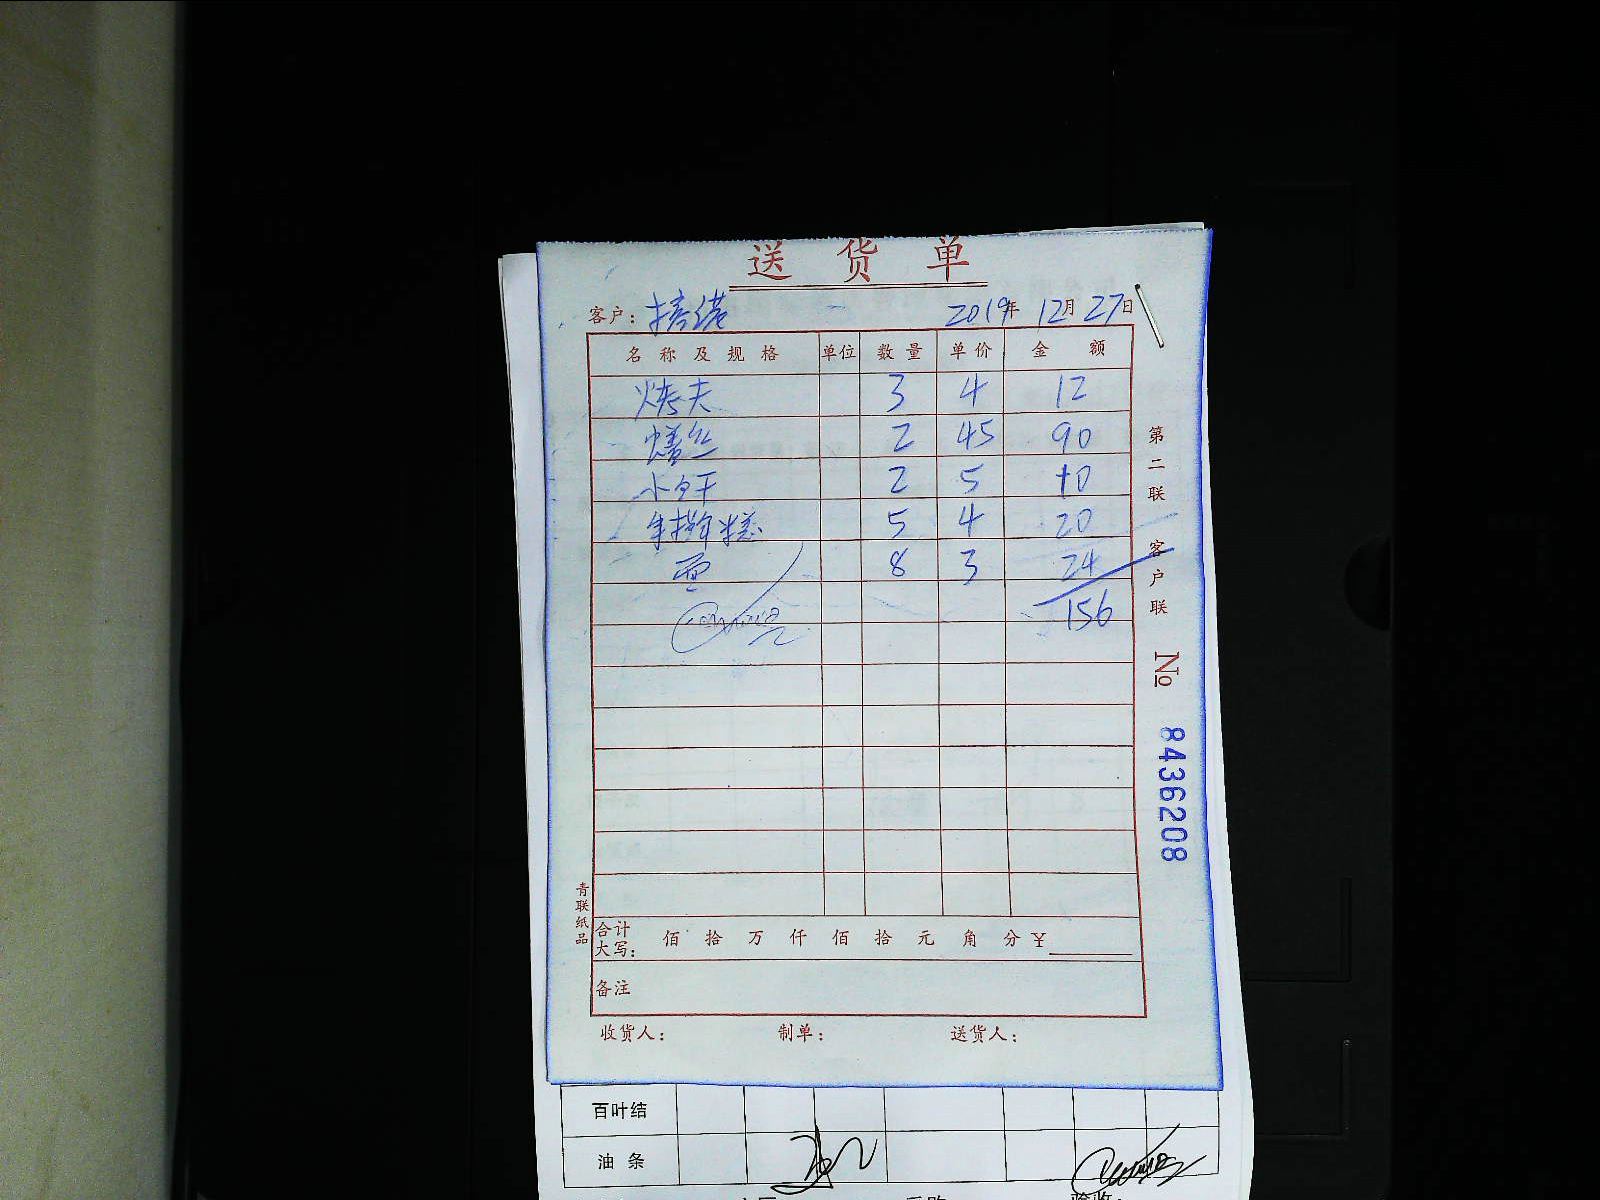 送 货 单
客户： 2019年 12月 27日
名称及规格 单位 数量 单价 金额
烤夫 3 4 12
鳝丝 2 45 90
小白干 2 5 10
5 4 20
面 8 3 24
156
第二联 客户联
№ 8436208
青联纸品
合计大写： 佰 拾 万 仟 佰 拾 元 角 分 ¥
备注
收货人： 制单： 送货人：
百叶结
油 条